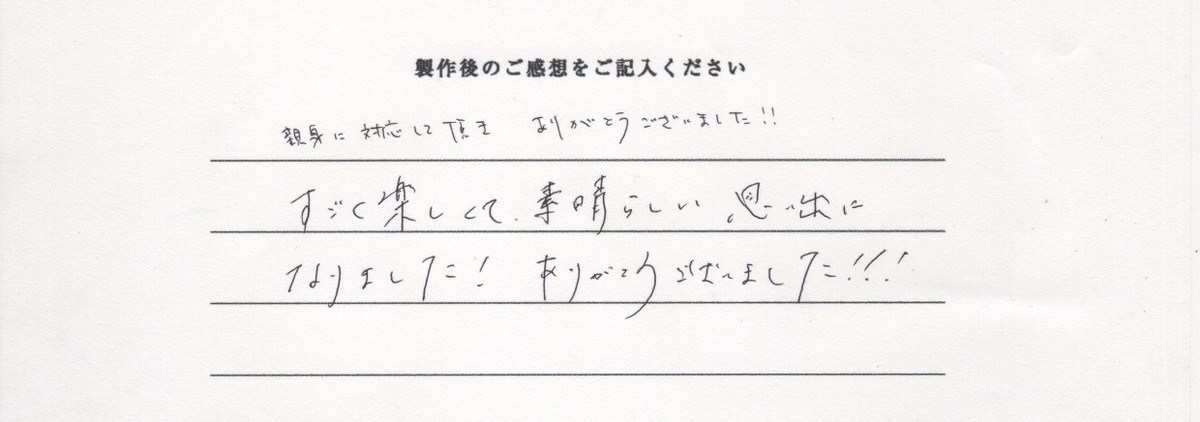 製作後のご感想をご記入ください
親身に対応して頂き ありがとうございました!!
すごく楽しくて、素晴らしい思い出に
なりました! ありがとうございました!!!